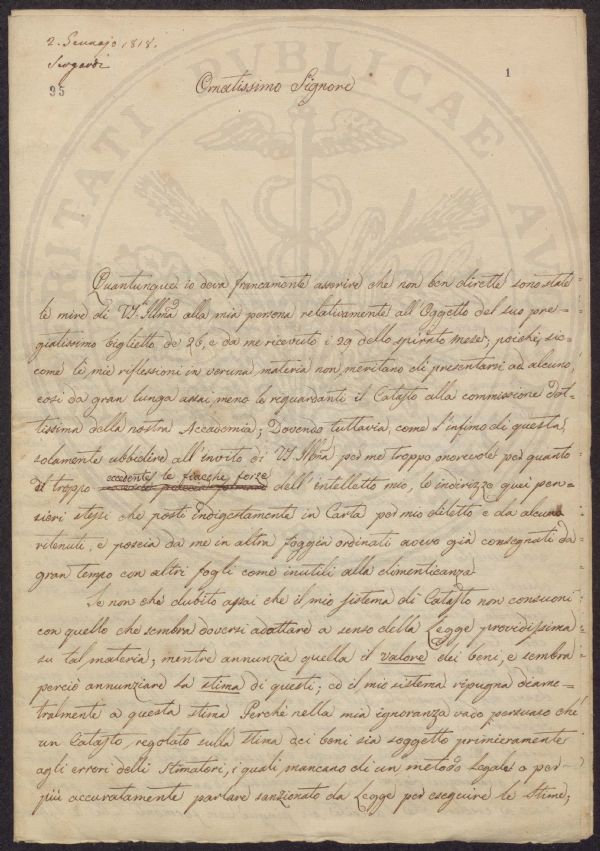 2. Gennajo 1818.
Sergardi
95
1
Ornatissimo Signore
RITATI PUBLICAE AU
Quantunque io deva francamente asserire che non ben dirette sono state
le mire di VS. Illma alla mia persona relativamente all'Oggetto del suo pre-
giatissimo biglietto de 26, e da me ricevuto i 29 dello spirato mese; poiché, sic-
come le mie riflessioni in veruna materia non meritano di presentarsi ad alcuno,
così da gran lunga assai meno le riguardanti il Catasto alla commissione dot-
tissima della nostra Accademia; Dovendo tuttavia, come l'infimo di questa,
solamente ubbidire all'invito di VS. Illma per me troppo onorevole per quanto
troppo eccedente le fiacche forze dell'intelletto mio, le indirizzo quei pen-
sieri stessi che posti indigestamente in Carta per mio diletto e da alcuno
ritenuti, e poscia da me in altra foggia ordinati avevo già consegnati da
gran tempo con altri fogli come inutili alla dimenticanza
Se non che dubito assai che il mio sistema di Catasto non consuoni
con quello che sembra doversi adottare a senso della Legge providissima
su tal materia; mentre annunzia quella il valore dei beni, e sembra
perciò annunziare la stima di questi; ed il mio sistema repugna diame-
tralmente a questa stima Perché nella mia ignoranza vado persuaso che
un Catasto regolato sulla stima dei beni sia soggetto primieramente
agli errori delli Stimatori, i quali mancano di un metodo legale o per
più accuratamente parlare sanzionato da Legge per eseguire le stime;